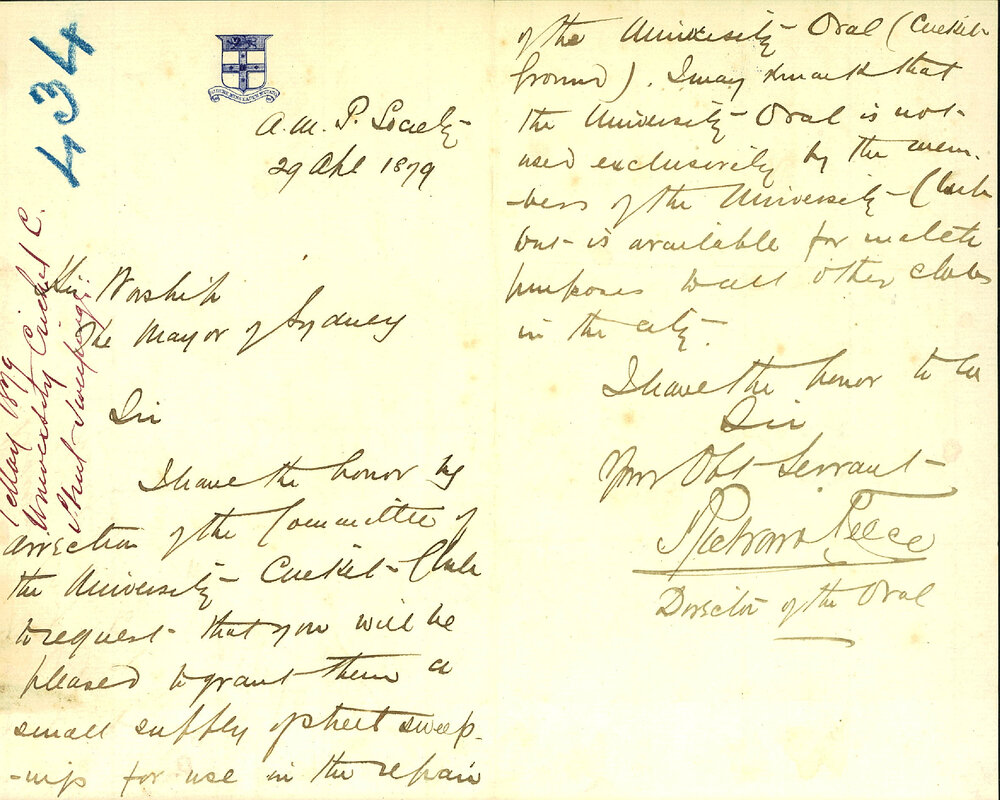 434
1 May 1879
University Cricket C.
Street Sweepings
A. M. P. Society
29 Apl 1879
His Worship
The Mayor of Sydney
Sir
I have the honor by
direction of the Committee of
the University Cricket Club
to request that you will be
pleased to grant them a
small supply of street sweep-
-ings for use in the repair
of the University Oval (Cricket
Ground). I may remark that
the University Oval is not
used exclusively by the mem-
-bers of the University Club
but is available for
purposes to all other clubs
in the city.
I have the honor to be
Sir
Your Obt Servant
Richard Teece
Director of the Oval